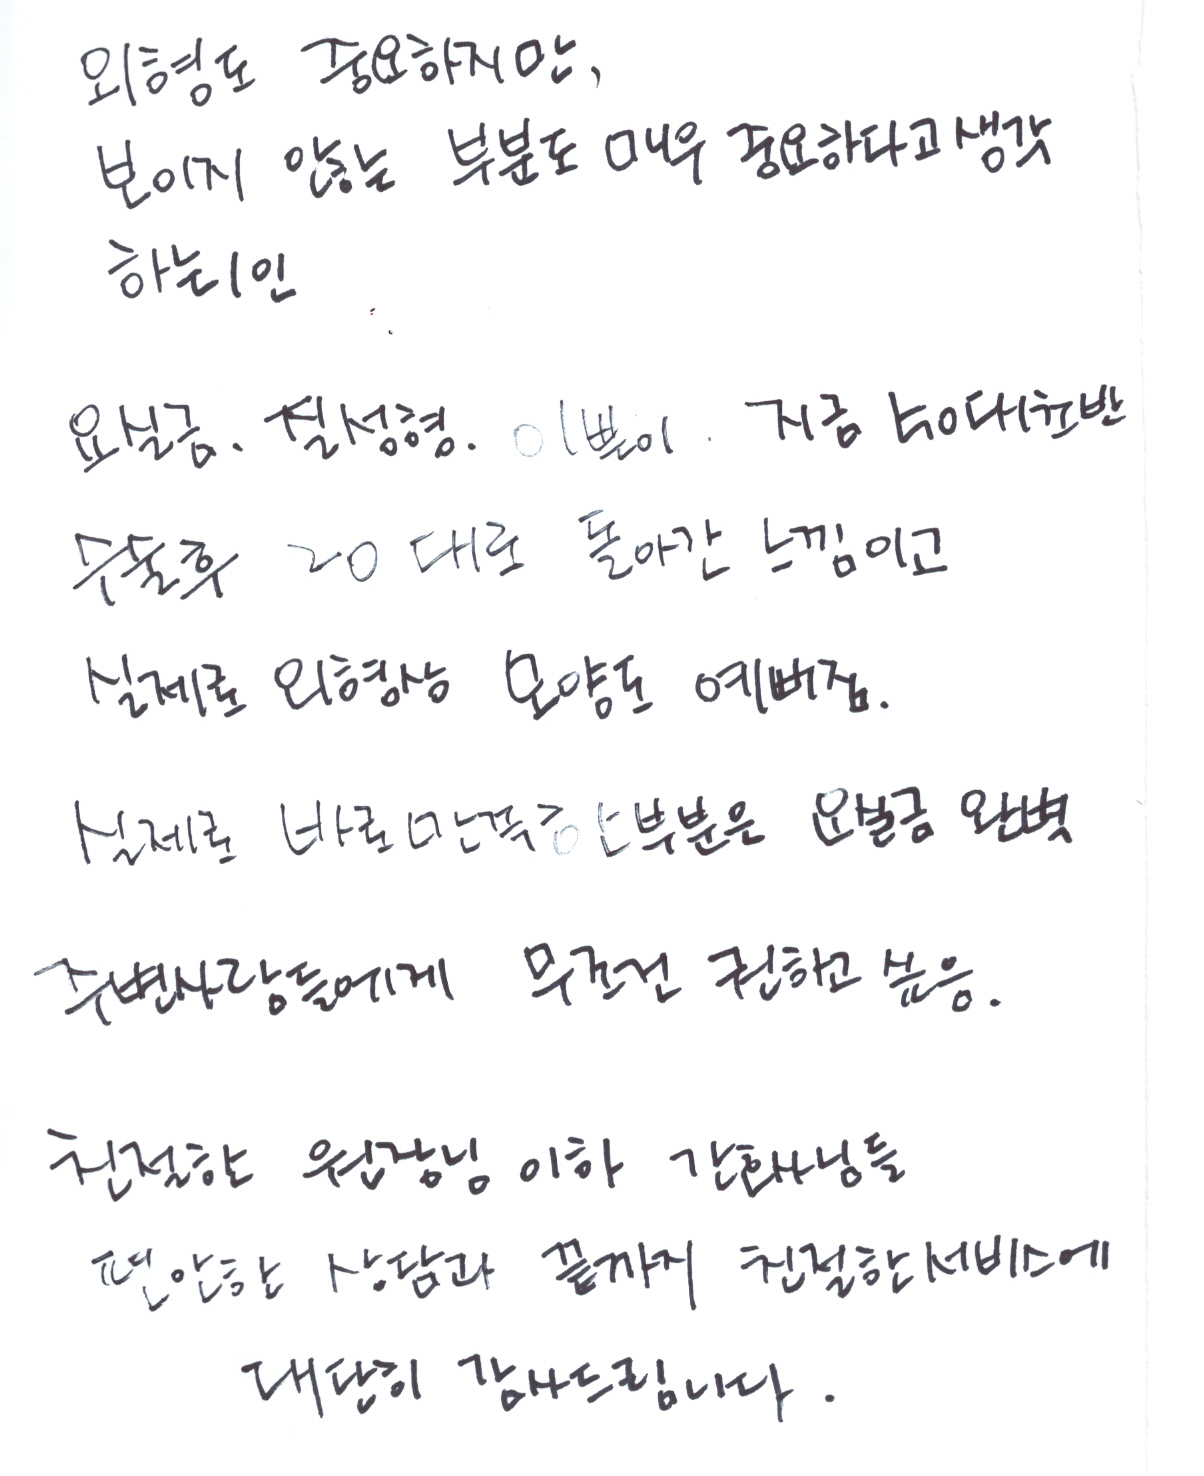 외형도 중요하지만,
보이지 않는 부분도 매우 중요하다고 생각
하는 1인
요실금. 질성형. 이쁜이. 지금 50대초반
수술후 20대로 돌아간 느낌이고
실제로 외형상 모양도 예뻐짐.
실제로 바로 만족한 부분은 요실금 완벽
주변사람들에게 무조건 권하고 싶음.
친절한 원장님 이하 간호사님들
편안한 상담과 끝까지 친절한 서비스에
대단히 감사드립니다.